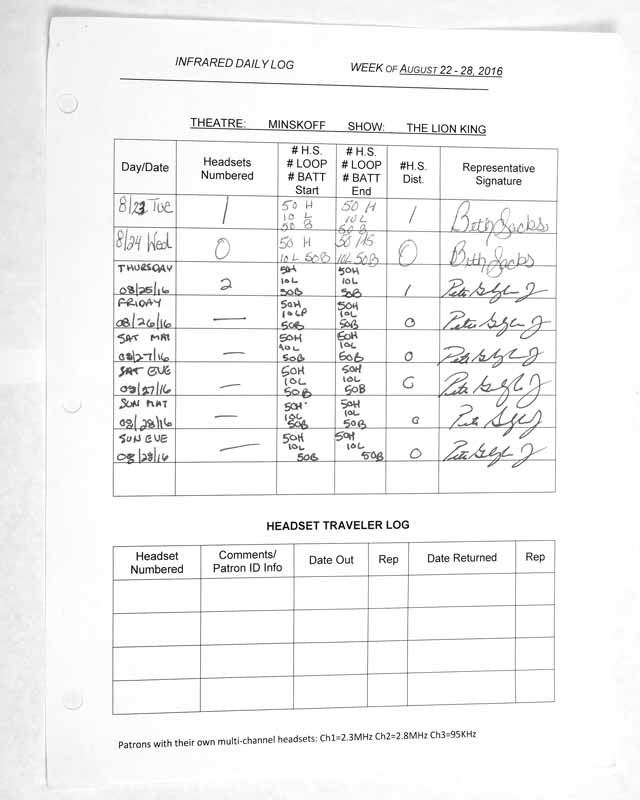 INFRARED DAILY LOG WEEK OF AUGUST 22 - 28, 2016
THEATRE: MINSKOFF SHOW: THE LION KING
Day/Date Headsets Numbered # H.S. # LOOP # BATT Start # H.S. # LOOP # BATT End #H.S. Dist. Representative Signature
8/23 Tue 1 50 H 10 L 50 B 50 H 10 L 50 B 1 Beth Jacks
8/24 Wed 0 50 H 10L 50B 50 10L 50B 0 Beth Jacks
THURSDAY 08/25/16 2 50H 10L 50B 50H 10L 50B 1
FRIDAY 08/26/16 — 50H 10LP 50B 50H 10L 50B 0
SAT MAT 08/27/16 — 50H 10L 50B 50H 10L 50B 0
SAT EVE 08/27/16 — 50H 10L 50B 50H 10L 50B 0
SUN MAT 08/28/16 — 50H 10L 50B 50H 10L 50B 0
SUN EVE 08/28/16 — 50H 10L 50B 50H 10L 50B 0
HEADSET TRAVELER LOG
Headset Numbered Comments/ Patron ID Info Date Out Rep Date Returned Rep
Patrons with their own multi-channel headsets: Ch1=2.3MHz Ch2=2.8MHz Ch3=95KHz